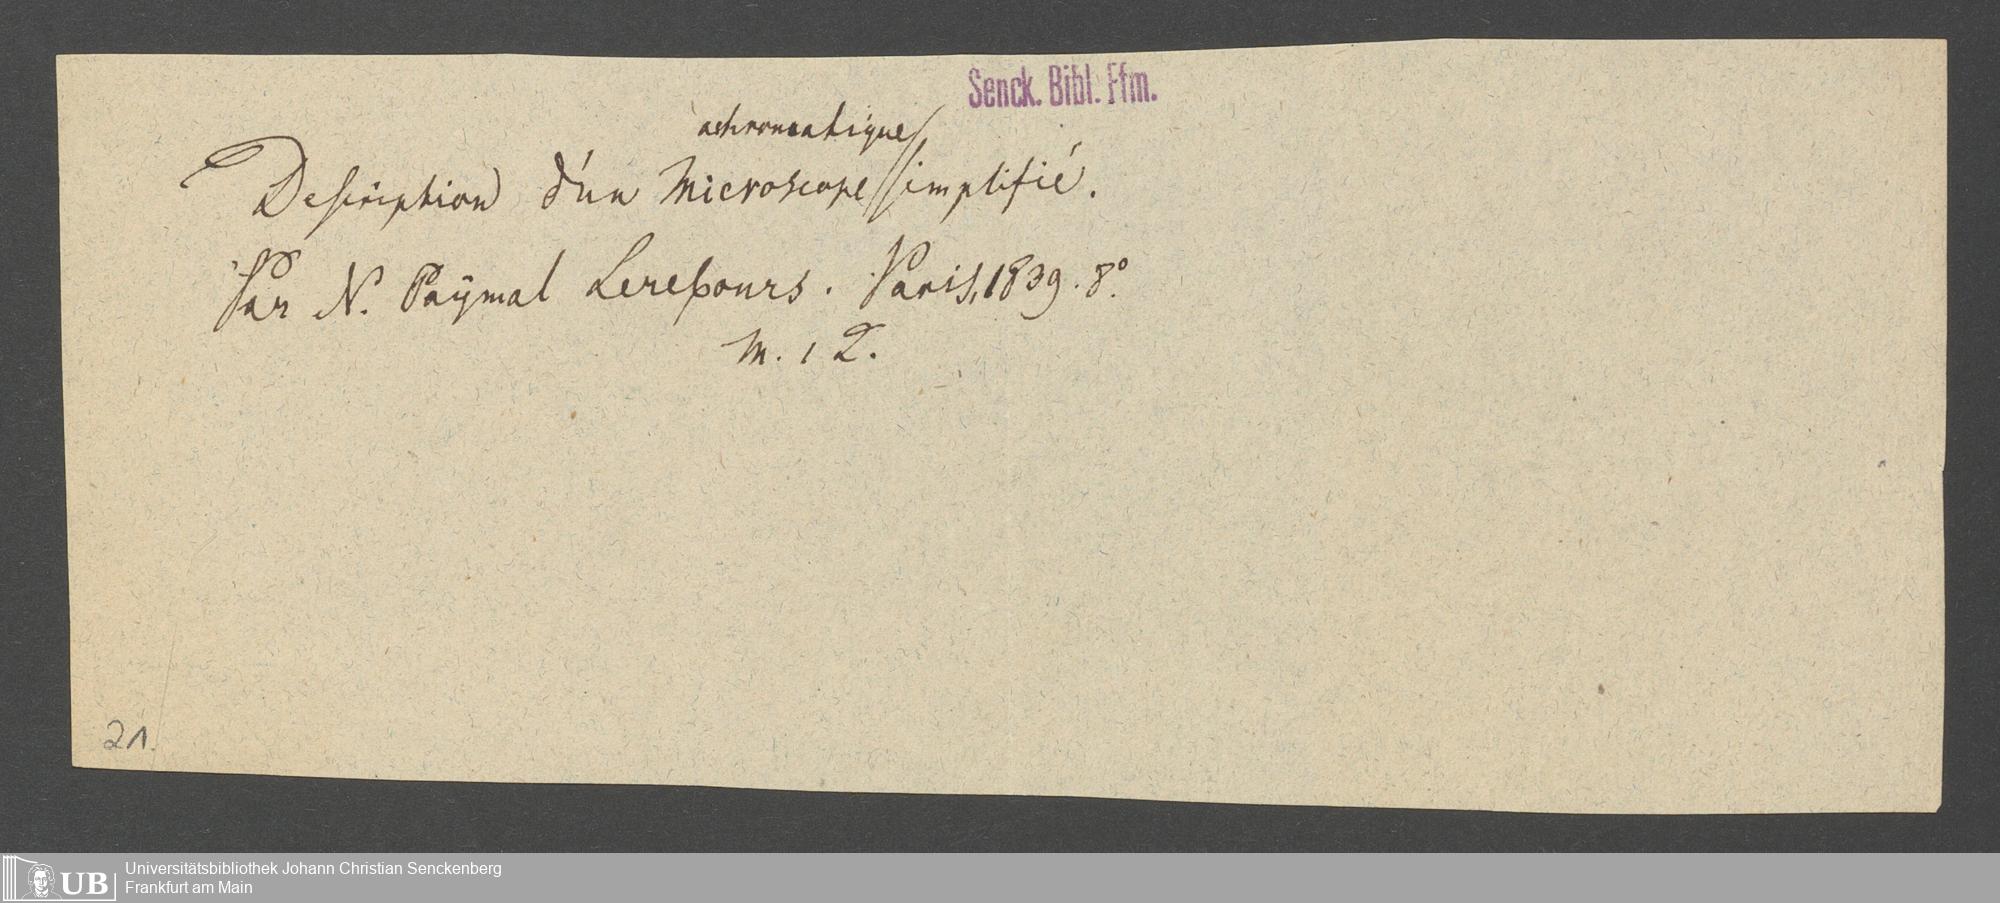 Senck. Bibl. Ffm.
achromatique
Description d'un Microscope simplifié.
Par N. Paÿmal Lerebours. Paris, 1839. 8°.
m. 1 T.
21.
Universitätsbibliothek Johann Christian Senckenberg
UB
Frankfurt am Main